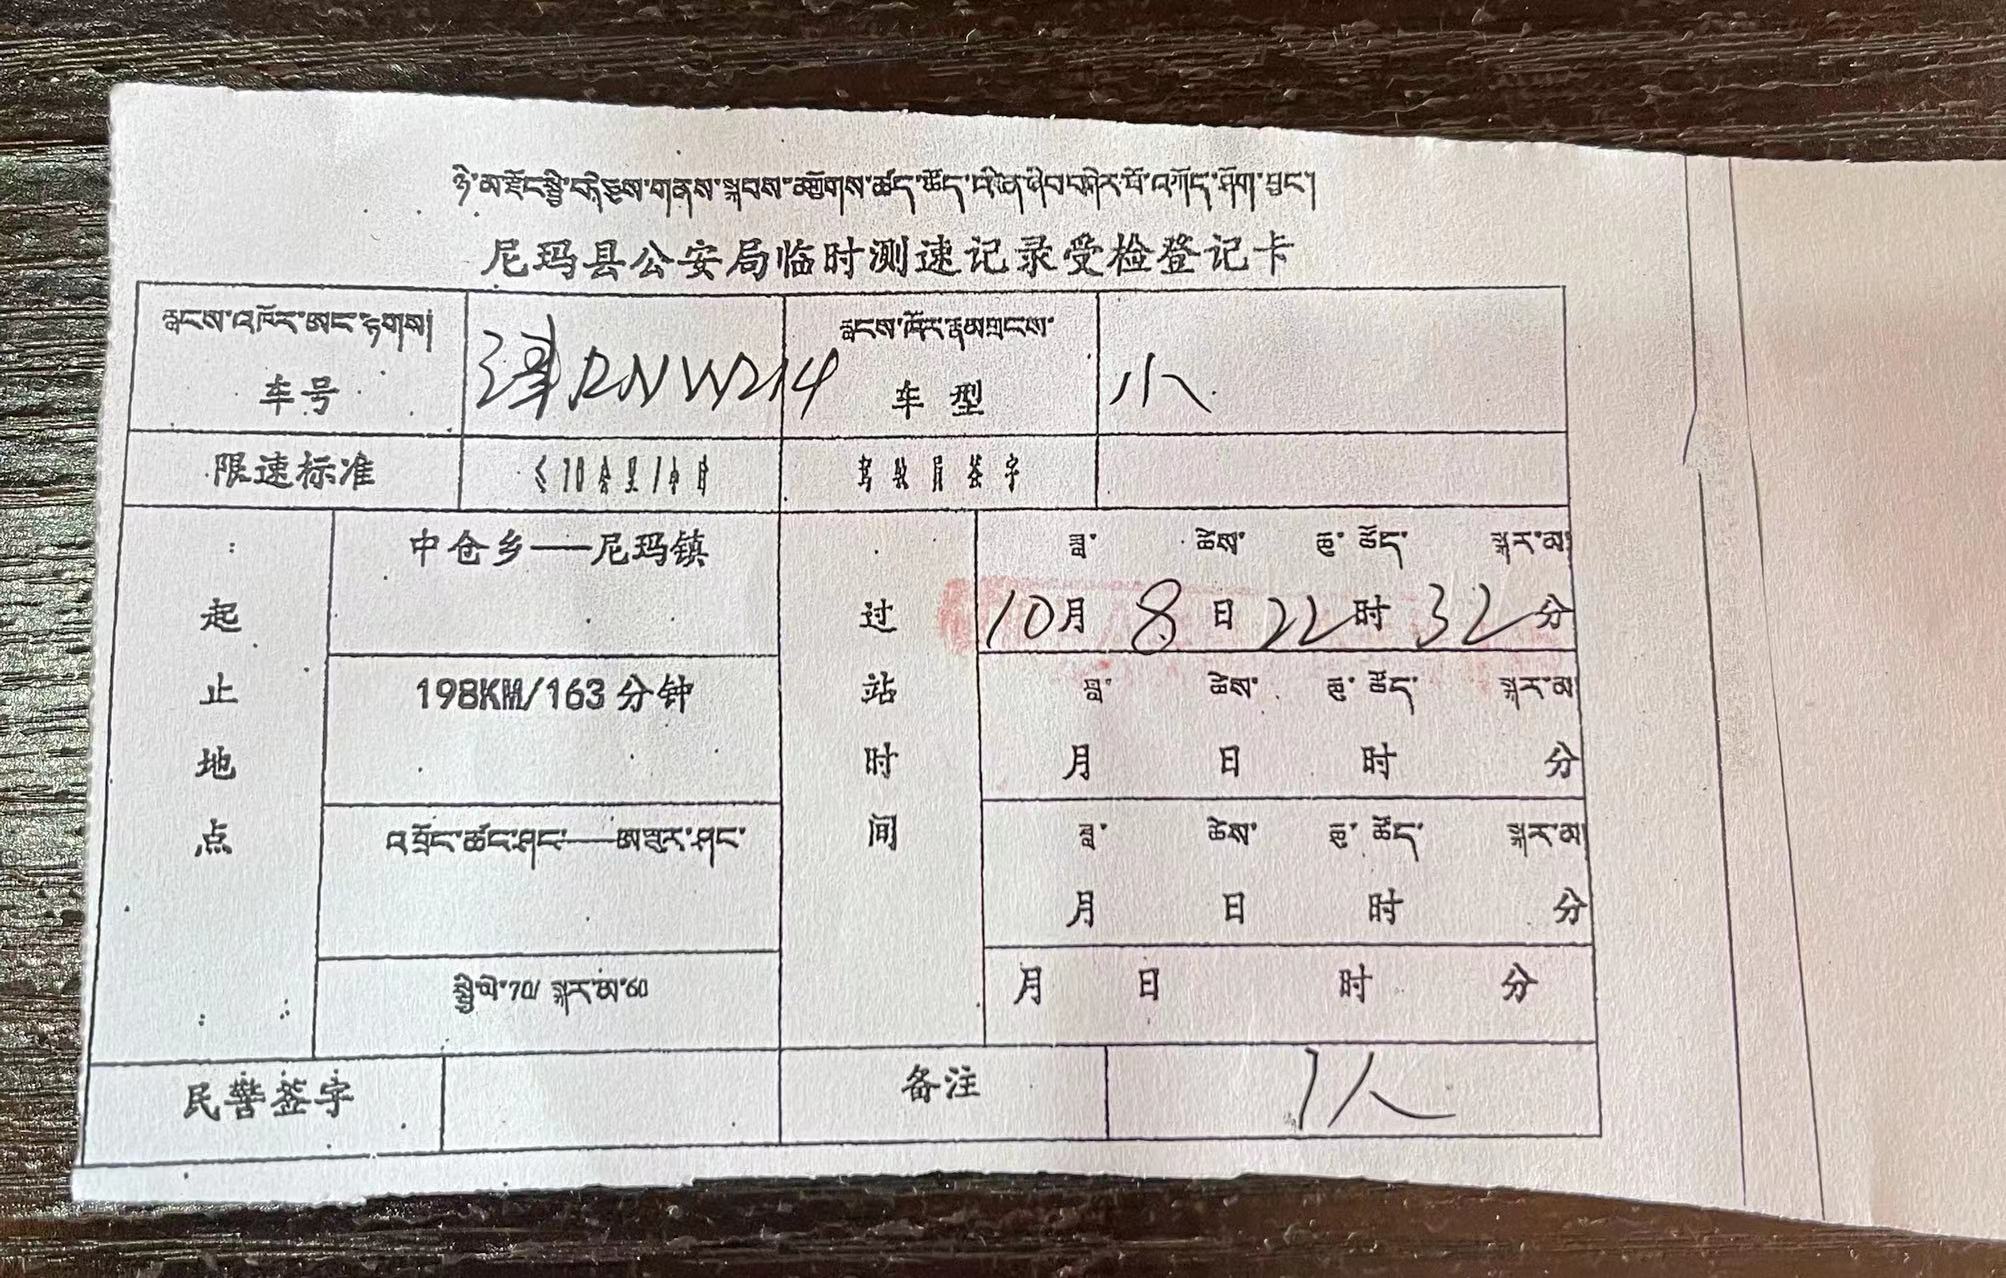 ཉི་མ་རྫོང་སྤྱི་བདེ་ཅུས་གནས་སྐབས་མགྱོགས་ཚད་ཚོད་
尼玛县公安局临时测速记录受检登记卡
རླངས་འཁོར་ཨང་རྟགས།
车号
津RNW214
རླངས་ཁོར་རྣམ་གྲངས་
车型
小
限速标准
≤70公里/小时
驾驶员签字
起止地点
中仓乡——尼玛镇
198KM/163分钟
འབྲོང་ཚང་ཤང་——
སྤྱི་ལེ་70/ སྐར་མ་60
过站时间
ཟླ་ ཚེས་ ཆུ་ཚོད་ སྐར་མ།
10月 8日 22时 32分
ཟླ་ ཚེས་ ཆུ་ཚོད་ སྐར་མ།
月 日 时 分
ཟླ་ ཚེས་ ཆུ་ཚོད་ སྐར་མ།
月 日 时 分
月 日 时 分
民警签字
备注
1人